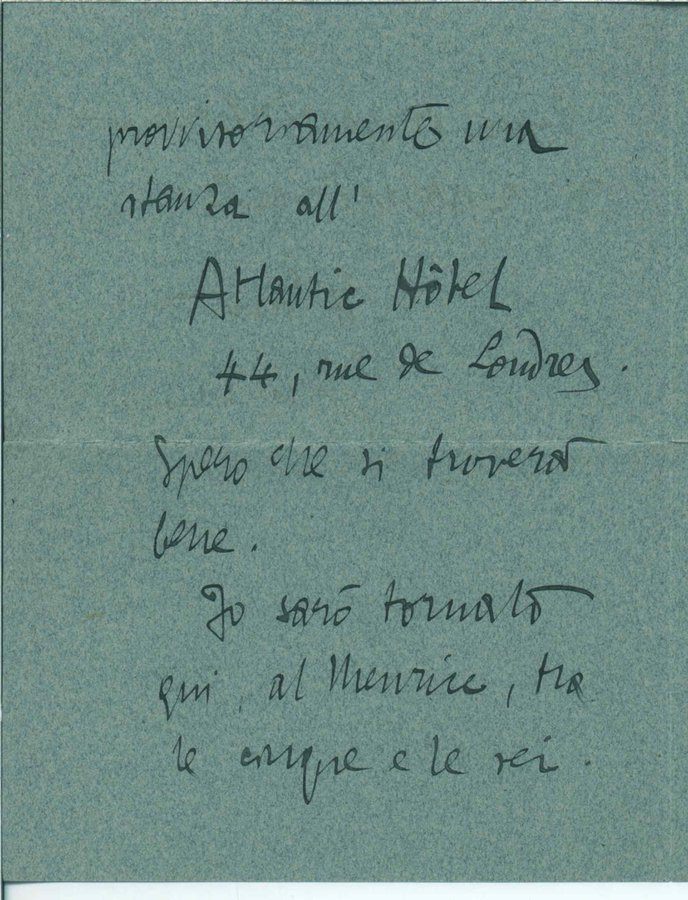 provvisoriamente una
stanza all'
Atlantic Hôtel
44, rue de Londres.
Spero che si troverà
bene.
Io sarò tornato
qui, al Meurice, tra
le cinque e le sei.